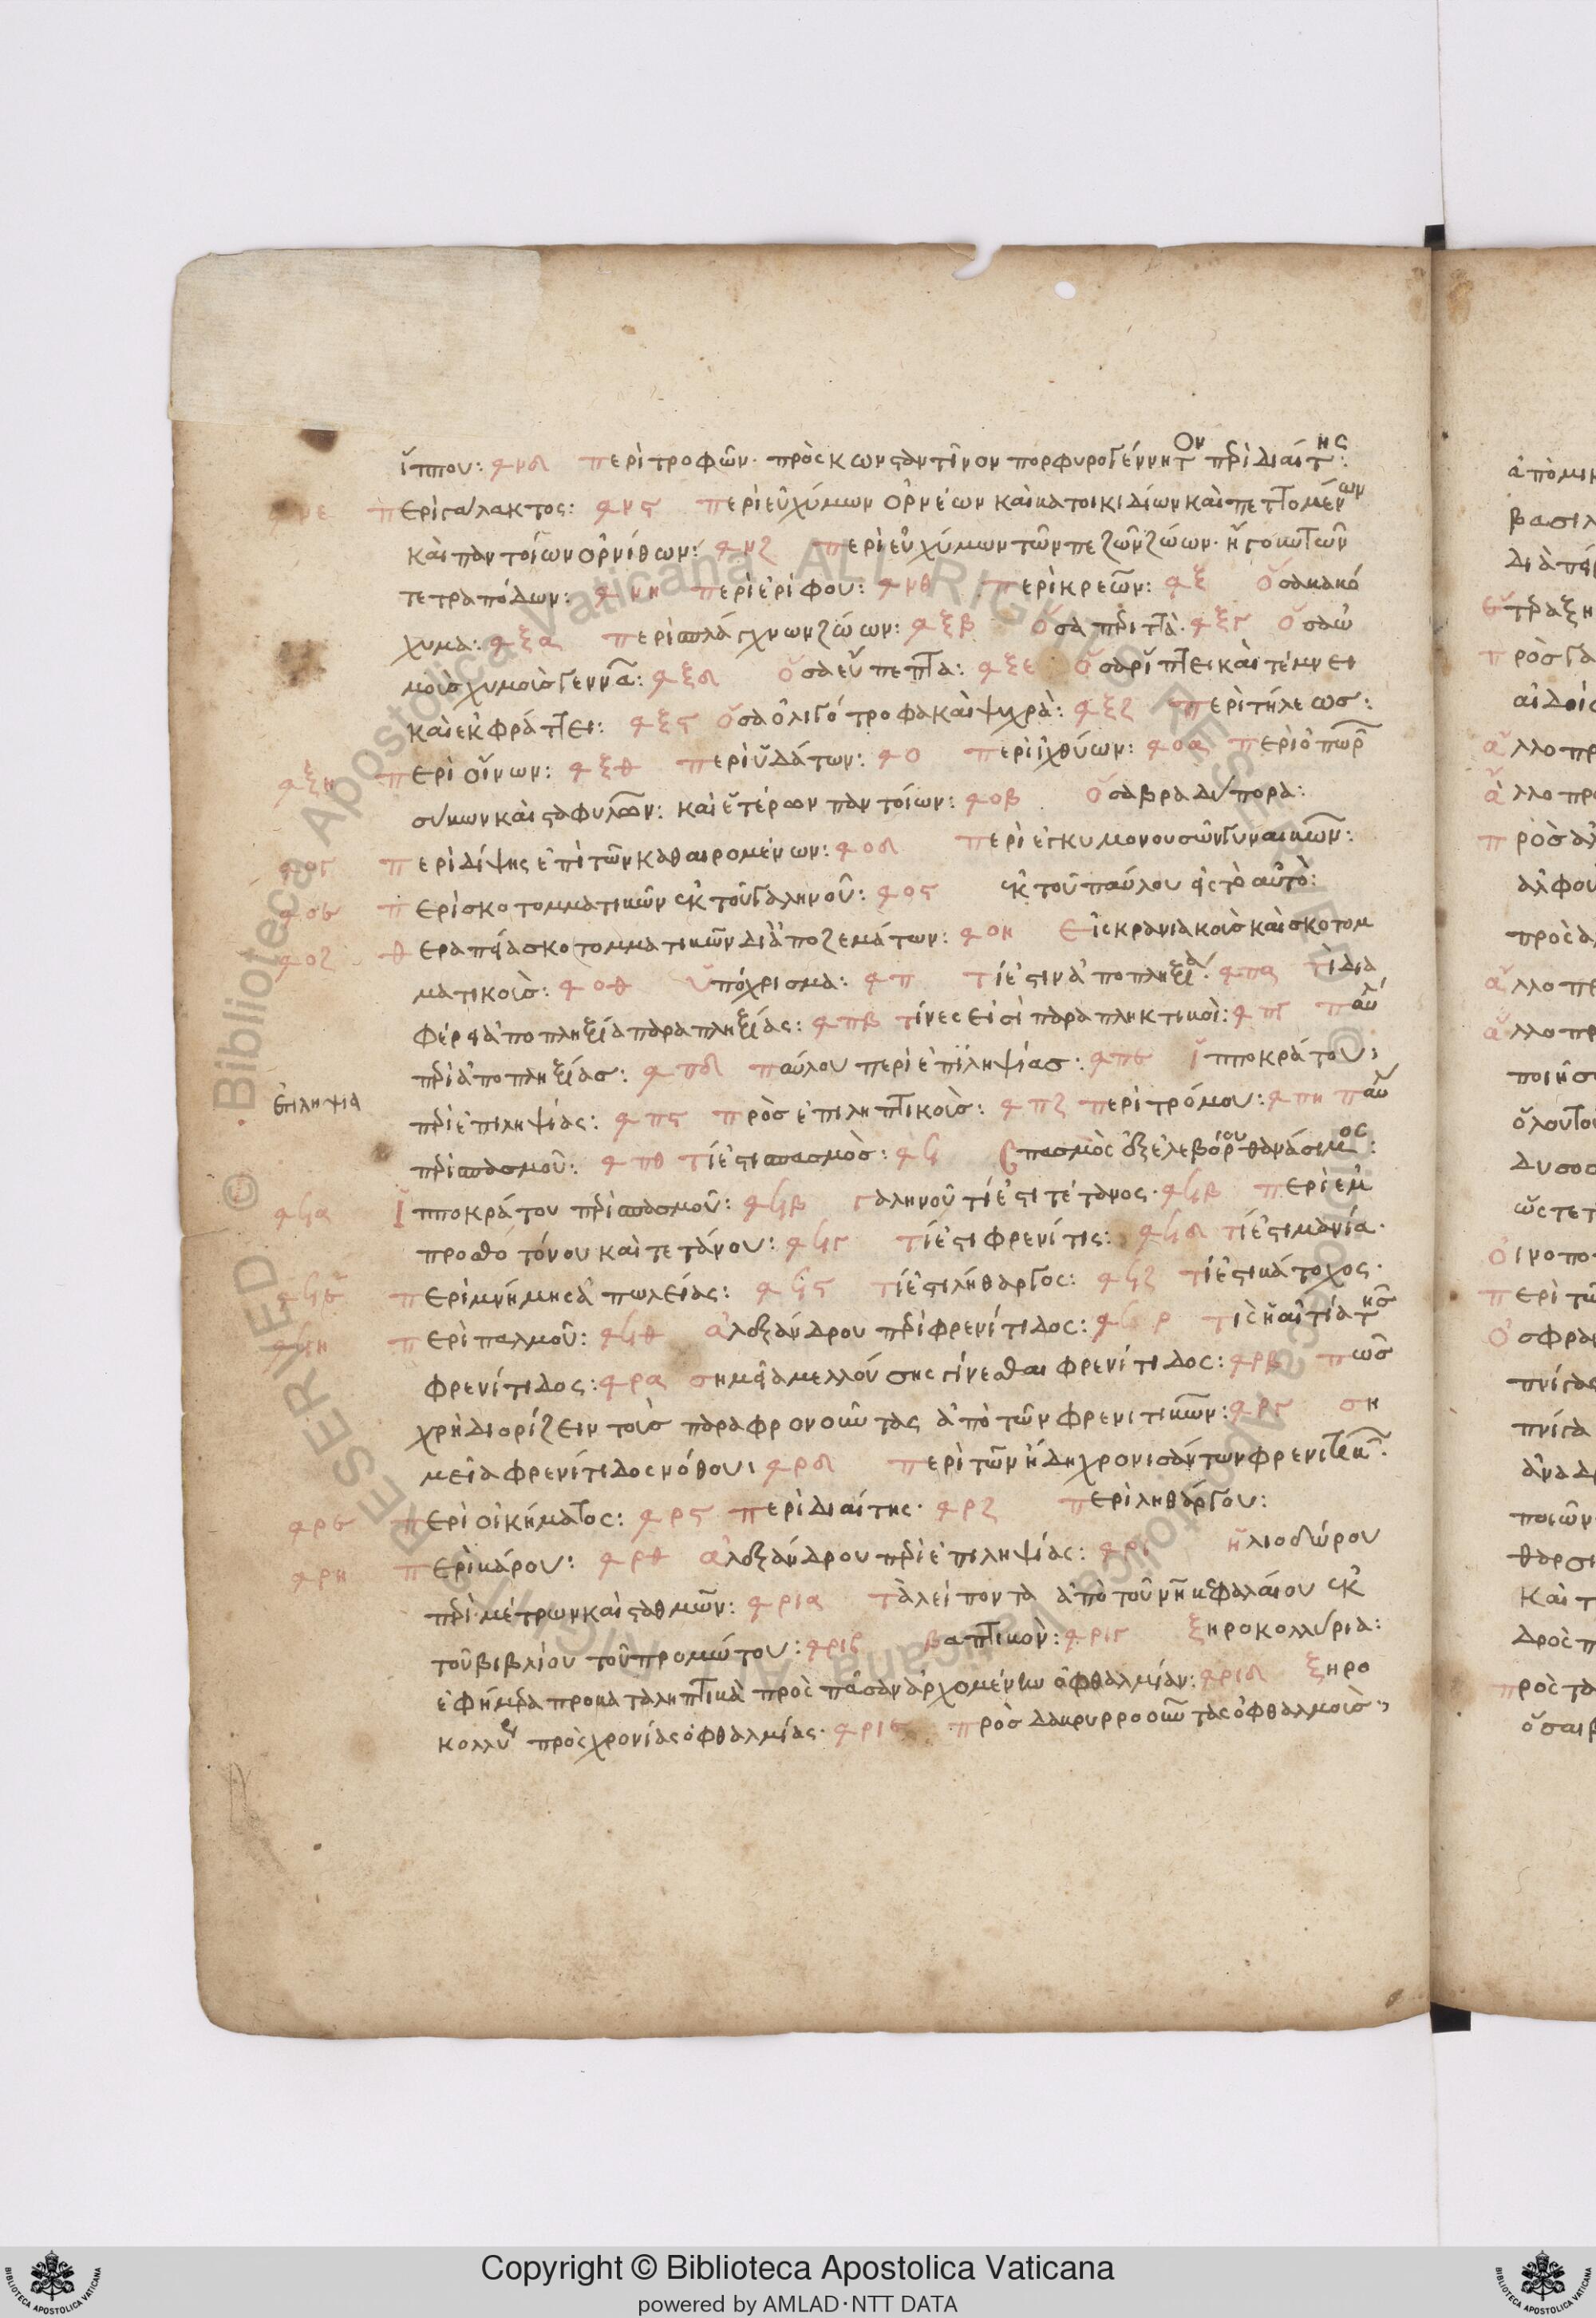 ἵππου: φνδ περὶ τροφῶν· πρὸς κωνσταντῖνον πορφυρογέννητον περὶ διαίτης:
φνε περὶ γάλακτος: φνς περὶ εὐχύμων ὀρνέων καὶ κατοικιδίων καὶ πετομένων
καὶ παντοίων ὀρνίθων: φνζ περὶ εὐχύμων τῶν πεζῶν ζώων· ἤγουν τῶν
τετραπόδων: φνη περὶ ἐρίφου: φνθ περὶ κρεῶν: φξ ὅσα κακό
χυμα: φξα περὶ σπλάγχνων ζώων: φξβ ὅσα περιττὰ· φξγ ὅσα ὠ
μοὺς χυμοὺς γεννᾶ: φξδ ὅσα εὔπεπτα: φξε ὅσα ῥύπτει καὶ τέμνει
καὶ ἐκφράττει: φξς ὅσα ὀλιγότροφα καὶ ψυχρὰ: φξζ περὶ τήλεως:
φξη περὶ οἴνων: φξθ περὶ ὑδάτων: φο περὶ ἰχθύων: φοα περὶ ὀπωρῶν
σύκων καὶ σταφυλῶν: καὶ ἑτέρων παντοίων: φοβ ὅσα βραδύπορα:
φογ περὶ δίψης ἐπὶ τῶν καθαιρομένων: φοδ περὶ ἐγκυμονουσῶν γυναικῶν:
φοε περὶ σκοτομματικῶν ἐκ τοῦ γαληνοῦ: φος ἐκ τοῦ παύλου εἰς τὸ αὐτὸ:
φοζ θεραπεία σκοτομματικῶν δι' ἀποζεμάτων: φοη εἰς κρανιακοὺς καὶ σκοτομ
ματικοὺς: φοθ ὑπόχρισμα: φπ τί ἐστιν ἀποπληξία: φπα τί δια
φέρει ἀποπληξία παραπληξίας: φπβ τίνες εἰσὶ παραπληκτικοὶ: φπγ παύλου
περὶ ἀποπληξίας: φπδ παύλου περὶ ἐπιληψίας: φπε ἱπποκράτου:
ἐπιληψία
περὶ ἐπιληψίας: φπς πρὸς ἐπιληπτικοὺς: φπζ περὶ τρόμου: φπη παύλου
περὶ σπασμοῦ: φπθ τί ἐστι σπασμὸς: φϟ σπασμὸς ἐξ ἐλεβόρου θανάσιμος:
φϟα ἱπποκράτου περὶ σπασμοῦ: φϟβ γαληνοῦ τί ἐστι τέτανος· φϟβ περὶ ἐμ
προσθοτόνου καὶ τετάνου: φϟγ τί ἐστι φρενίτις: φϟδ τί ἐστι μανία·
φϟε περὶ μνήμης ἀπωλείας: φϟς τί ἐστι λήθαργος: φϟζ τί ἐστι κάτοχος·
φϟη περὶ παλμοῦ: φϟθ ἀλεξάνδρου περὶ φρενίτιδος: φρ τίς ἡ αἰτία τῆς
φρενίτιδος: φρα σημεῖα μελλούσης γίνεσθαι φρενίτιδος: φρβ πῶς
χρὴ διορίζειν τοὺς παραφρονοῦντας ἀπὸ τῶν φρενιτικῶν: φργ ση
μεῖα φρενίτιδος νόθου: φρδ περὶ τῶν ἤδη χρονισάντων φρενιτικῶν:
φρε περὶ οἰκήματος: φρς περὶ διαίτης· φρζ περὶ ληθάργου:
φρη περὶ κάρου: φρθ ἀλεξάνδρου περὶ ἐπιληψίας: φρι ἡλιοδώρου
περὶ μέτρων καὶ σταθμῶν: φρια τὰ λείποντα ἀπὸ τοῦ νη κεφαλαίου ἐκ
τοῦ βιβλίου τοῦ πρώτου: φριβ βαπτικὸν: φριγ ξηροκολλύρια:
ἐφήμερα προκαταληπτικὰ πρὸς πᾶσαν ἀρχομένην ὀφθαλμίαν: φριδ ξηρο
κολλύρ πρὸς χρονίας ὀφθαλμίας· φριε πρὸς δακρυρροοῦντας ὀφθαλμοὺς:
Copyright © Biblioteca Apostolica Vaticana
powered by AMLAD·NTT DATA